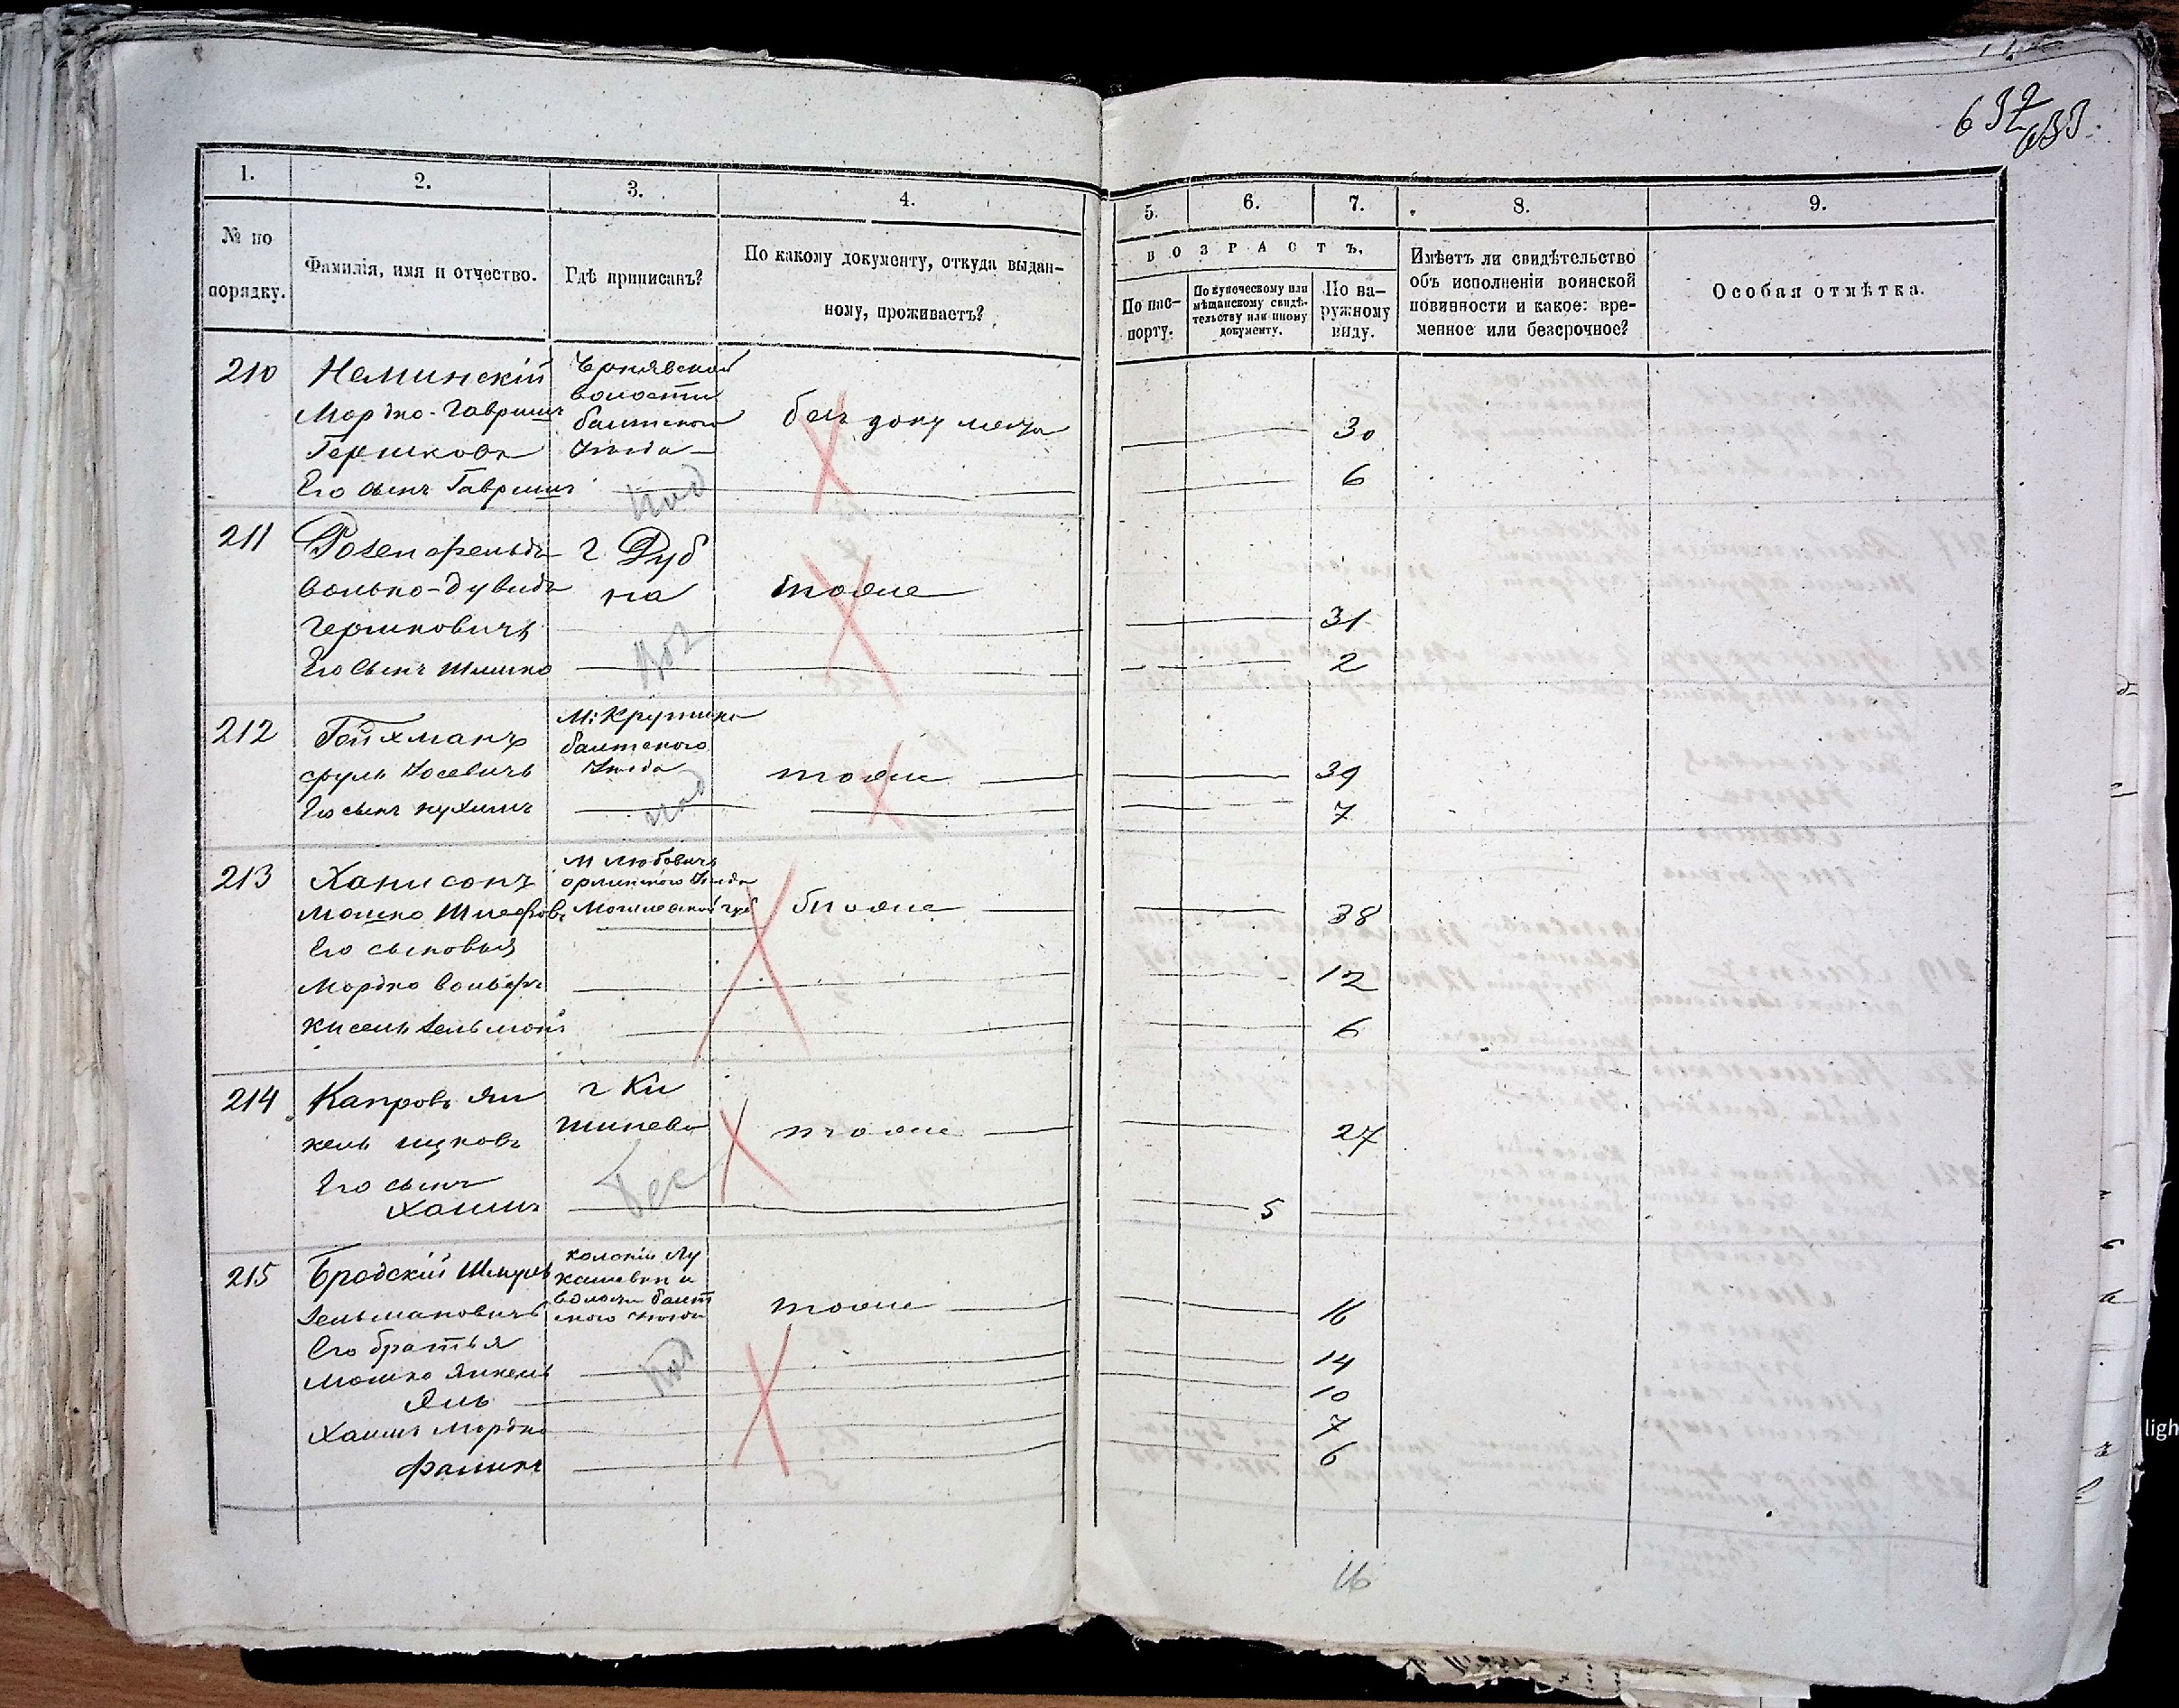 632
633
1.
2.
3.
4.
5.
6.
7.
8.
9.
№ по порядку.
Фамилія, имя и отчество.
Гдѣ приписанъ?
По какому документу, откуда выдан-
ному, проживаетъ?
ВОЗРАСТЪ,
По пас-
порту.
По купеческому или
мѣщанскому свидѣ-
тельству или иному
документу.
По на-
ружному
виду.
Имѣетъ ли свидѣтельство
объ исполненіи воинской
повинности и какое: вре-
менное или безсрочное?
Особая отмѣтка.
210
Неминскій
Мордко-Гавриил
Гершковъ
Его сынъ Гавриилъ
волости
балтского
Уезда
под
безъ документа
30
6
211
Розенфельдъ
Волько-Дувидъ
Гершковичъ
Его Сынъ Шмилко
г Дуб
на
тоже
31
2
212
Гойхманъ
Сруль Іосевичъ
Его сынъ Нухимъ
М: Крутыхъ
балтского
Уезда
под
тоже
39
7
213
Хаписонъ
Мошко
Его сыновья
Мордко Вольфъ
Кисель Зельманъ
м Любовичъ
Уезда
Могилевской губ
тоже
38
12
6
214
Капровъ Ян
кель Ицковъ
Его сынъ
Хаимъ
г Ки
шинева
Бес
тоже
27
5
215
Бродскій Шмуль
Зельмановичъ
Его братья
Мошко Янкель
Хаимъ Мордко
колоніи Лу
кашевки
волости балт
ского уезда
Под
тоже
16
14
10
7
6
16